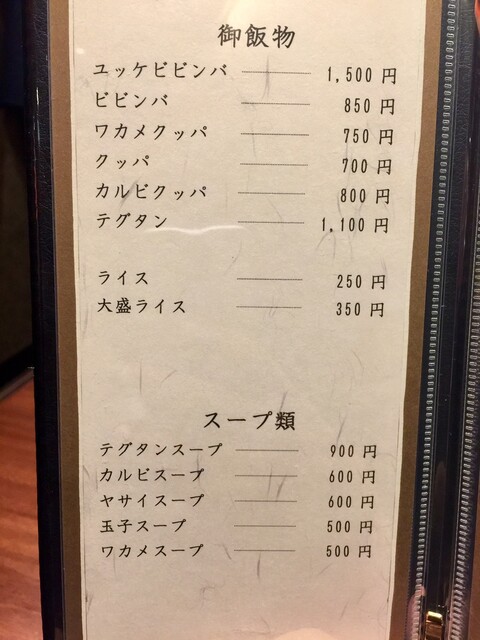 御飯物
ユッケビビンバ 1,500 円
ビビンバ 850 円
ワカメクッパ 750 円
クッパ 700 円
カルビクッパ 800 円
テグタン 1,100 円
ライス 250 円
大盛ライス 350 円
スープ類
テグタンスープ 900 円
カルビスープ 600 円
ヤサイスープ 600 円
玉子スープ 500 円
ワカメスープ 500 円